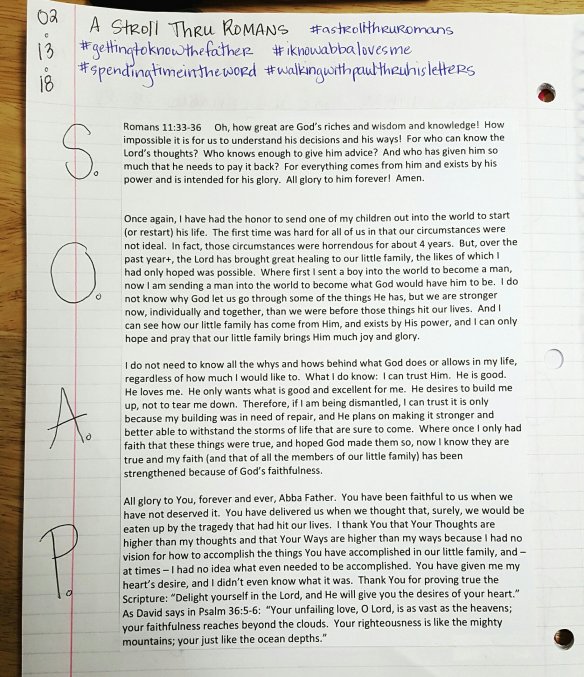 02
•
13
•
18
A STROLL THRU ROMANS #astrollthruromans
#gettingtoknowthefather #iknowabbalovesme
#spendingtimeintheword #walkingwithpaulthruhisletters
S.
Romans 11:33-36 Oh, how great are God's riches and wisdom and knowledge! How
impossible it is for us to understand his decisions and his ways! For who can know the
Lord's thoughts? Who knows enough to give him advice? And who has given him so
much that he needs to pay it back? For everything comes from him and exists by his
power and is intended for his glory. All glory to him forever! Amen.
O.
Once again, I have had the honor to send one of my children out into the world to start
(or restart) his life. The first time was hard for all of us in that our circumstances were
not ideal. In fact, those circumstances were horrendous for about 4 years. But, over the
past year+, the Lord has brought great healing to our little family, the likes of which I
had only hoped was possible. Where first I sent a boy into the world to become a man,
now I am sending a man into the world to become what God would have him to be. I do
not know why God let us go through some of the things He has, but we are stronger
now, individually and together, than we were before those things hit our lives. And I
can see how our little family has come from Him, and exists by His power, and I can only
hope and pray that our little family brings Him much joy and glory.
A.
I do not need to know all the whys and hows behind what God does or allows in my life,
regardless of how much I would like to. What I do know: I can trust Him. He is good.
He loves me. He only wants what is good and excellent for me. He desires to build me
up, not to tear me down. Therefore, if I am being dismantled, I can trust it is only
because my building was in need of repair, and He plans on making it stronger and
better able to withstand the storms of life that are sure to come. Where once I only had
faith that these things were true, and hoped God made them so, now I know they are
true and my faith (and that of all the members of our little family) has been
strengthened because of God's faithfulness.
P.
All glory to You, forever and ever, Abba Father. You have been faithful to us when we
have not deserved it. You have delivered us when we thought that, surely, we would be
eaten up by the tragedy that had hit our lives. I thank You that Your Thoughts are
higher than my thoughts and that Your Ways are higher than my ways because I had no
vision for how to accomplish the things You have accomplished in our little family, and –
at times – I had no idea what even needed to be accomplished. You have given me my
heart's desire, and I didn't even know what it was. Thank You for proving true the
Scripture: "Delight yourself in the Lord, and He will give you the desires of your heart."
As David says in Psalm 36:5-6: "Your unfailing love, O Lord, is as vast as the heavens;
your faithfulness reaches beyond the clouds. Your righteousness is like the mighty
mountains; your just like the ocean depths."